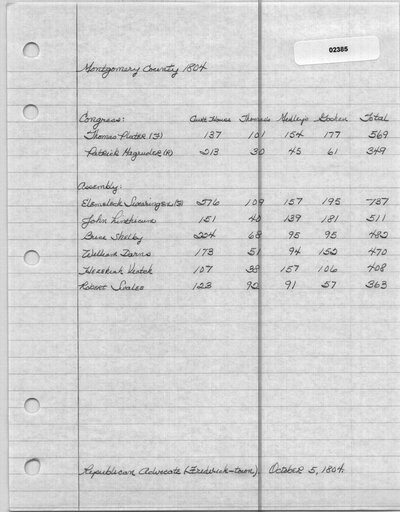 02385
Montgomery County 1804
Congress: Court House Thomas's Medley's Goshen Total
Thomas Plater (F) 137 101 154 177 569
Patrick Magruder (R) 213 30 45 61 349
Assembly:
Elemeleck Swearingen (F) 276 109 157 195 737
John Linthicum 151 40 139 181 511
Brice Shelby 224 68 95 95 482
William Darne 173 51 94 152 470
Hezekiah Veatch 107 38 157 106 408
Robert 123 92 91 57 363
Republican Advocate (Frederick-town). October 5, 1804.